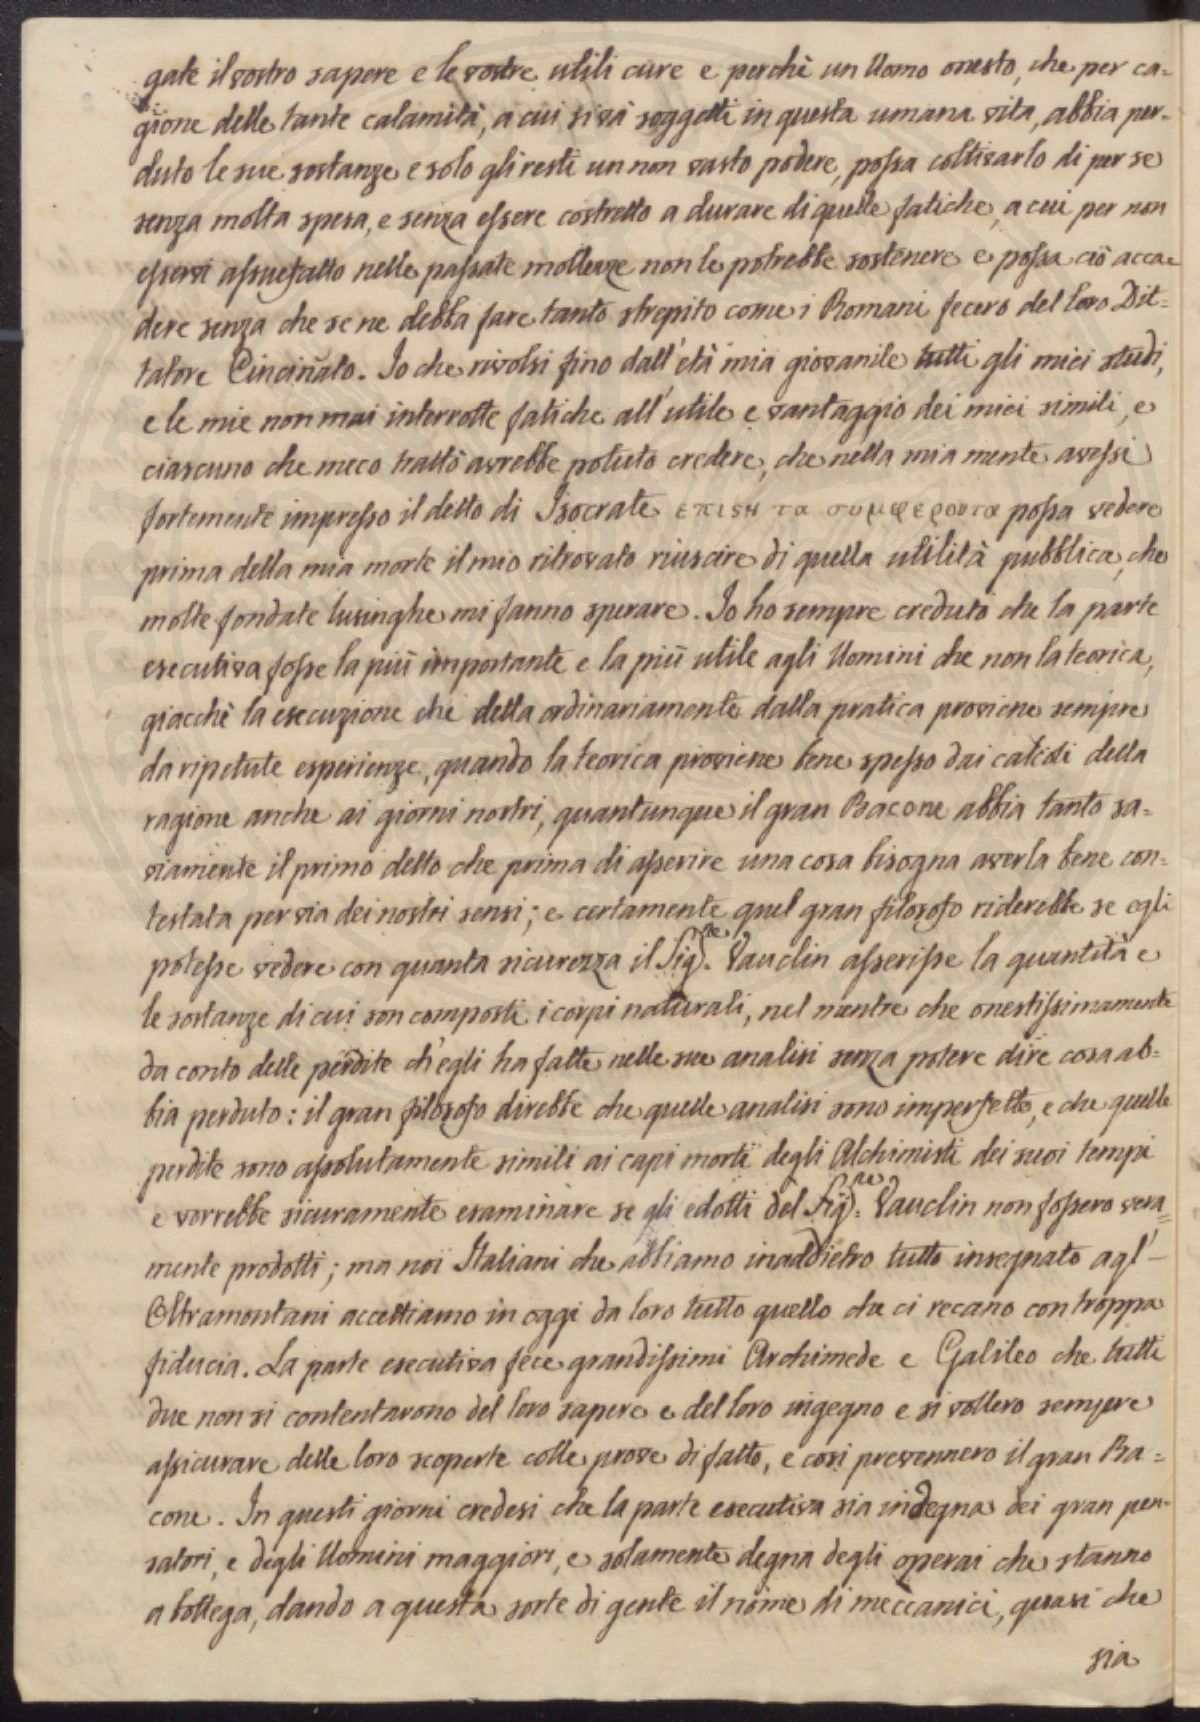 gate il vostro sapere e le vostre utili cure e perchè un Uomo onesto, che per ca=
gione delle tante calamità, a cui si và soggetti in questa umana vita, abbia per=
duto le sue sostanze e solo gli resti un non vasto podere, possa coltivarlo di per se
senza molta spesa, e senza essere costretto a durare di quelle fatiche, a cui per non
essersi assuefatto nelle passate mollezze non le potrebbe sostenere e possa ciò acca=
dere senza che se ne debba fare tanto strepito come i Romani fecero del loro Dit=
tatore Cincinato. Io che rivolsi fino dall'età mia giovanile tutti gli miei studi,
e le mie non mai interrotte fatiche all'utile e vantaggio dei miei simili, e
ciascuno che meco trattò avrebbe potuto credere, che nella mia mente avessi
fortemente impresso il detto di Isocrate επιση τα συμφεροοτα possa vedere
prima della mia morte il mio ritrovato riuscire di quella utilità pubblica, che
molte fondate lusinghe mi fanno sperare. Io ho sempre creduto che la parte
esecutiva fosse la più importante e la più utile agli Uomini che non la teorica,
giacchè la esecuzione che detta ordinariamente dalla pratica proviene sempre
da ripetute esperienze, quando la teorica proviene bene spesso dai calcoli della
ragione anche ai giorni nostri, quantunque il gran Bacone abbia tanto sa=
viamente il primo detto che prima di asserire una cosa bisogna averla bene con=
testata per via dei nostri sensi; e certamente quel gran filosofo riderebbe se egli
potesse vedere con quanta sicurezza il Sig.re Vauclin asserisse la quantità e
le sostanze di cui son composti i corpi naturali, nel mentre che onestissimamente
da conto delle perdite ch'egli ha fatte nelle sue analisi senza potere dire cosa ab=
bia perduto: il gran filosofo direbbe che quelle analisi sono imperfette, e che quelle
perdite sono assolutamente simili ai capi morti degli Alchimisti dei suoi tempi
e vorrebbe sicuramente esaminare se gli edotti del Sig.re Vauclin non fossero vera=
mente prodotti; ma noi Italiani che abbiamo inaddietro tutto insegnato agl'=
Oltramontani accettiamo in oggi da loro tutto quello che ci recano con troppa
fiducia. La parte esecutiva fece grandissimi Archimede e Galileo che tutti
due non si contentarono del loro sapere e del loro ingegno e si vollero sempre
assicurare delle loro scoperte colle prove di fatto, e così prevennero il gran Ba=
cone. In questi giorni credesi che la parte esecutiva sia indegna dei gran pen=
satori, e degli Uomini maggiori, e solamente degna degli operai che stanno
a bottega, dando a questa sorte di gente il nome di meccanici, quasi che
sia